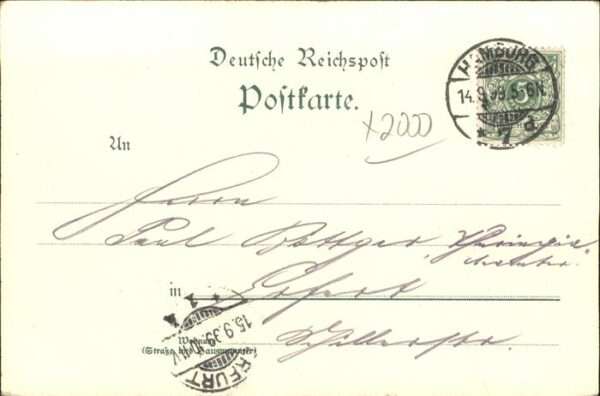 Deutsche Reichspost
Postkarte.
HAMBURG
14.9.99.5-6N.
* 7 d.
5
x2000
An
Herrn
Paul Böttger, Thuringia
in Erfurt
Schillerstr.
Wohnung
(Straße und Hausnummer)
ERFURT
15.9.99
* 1